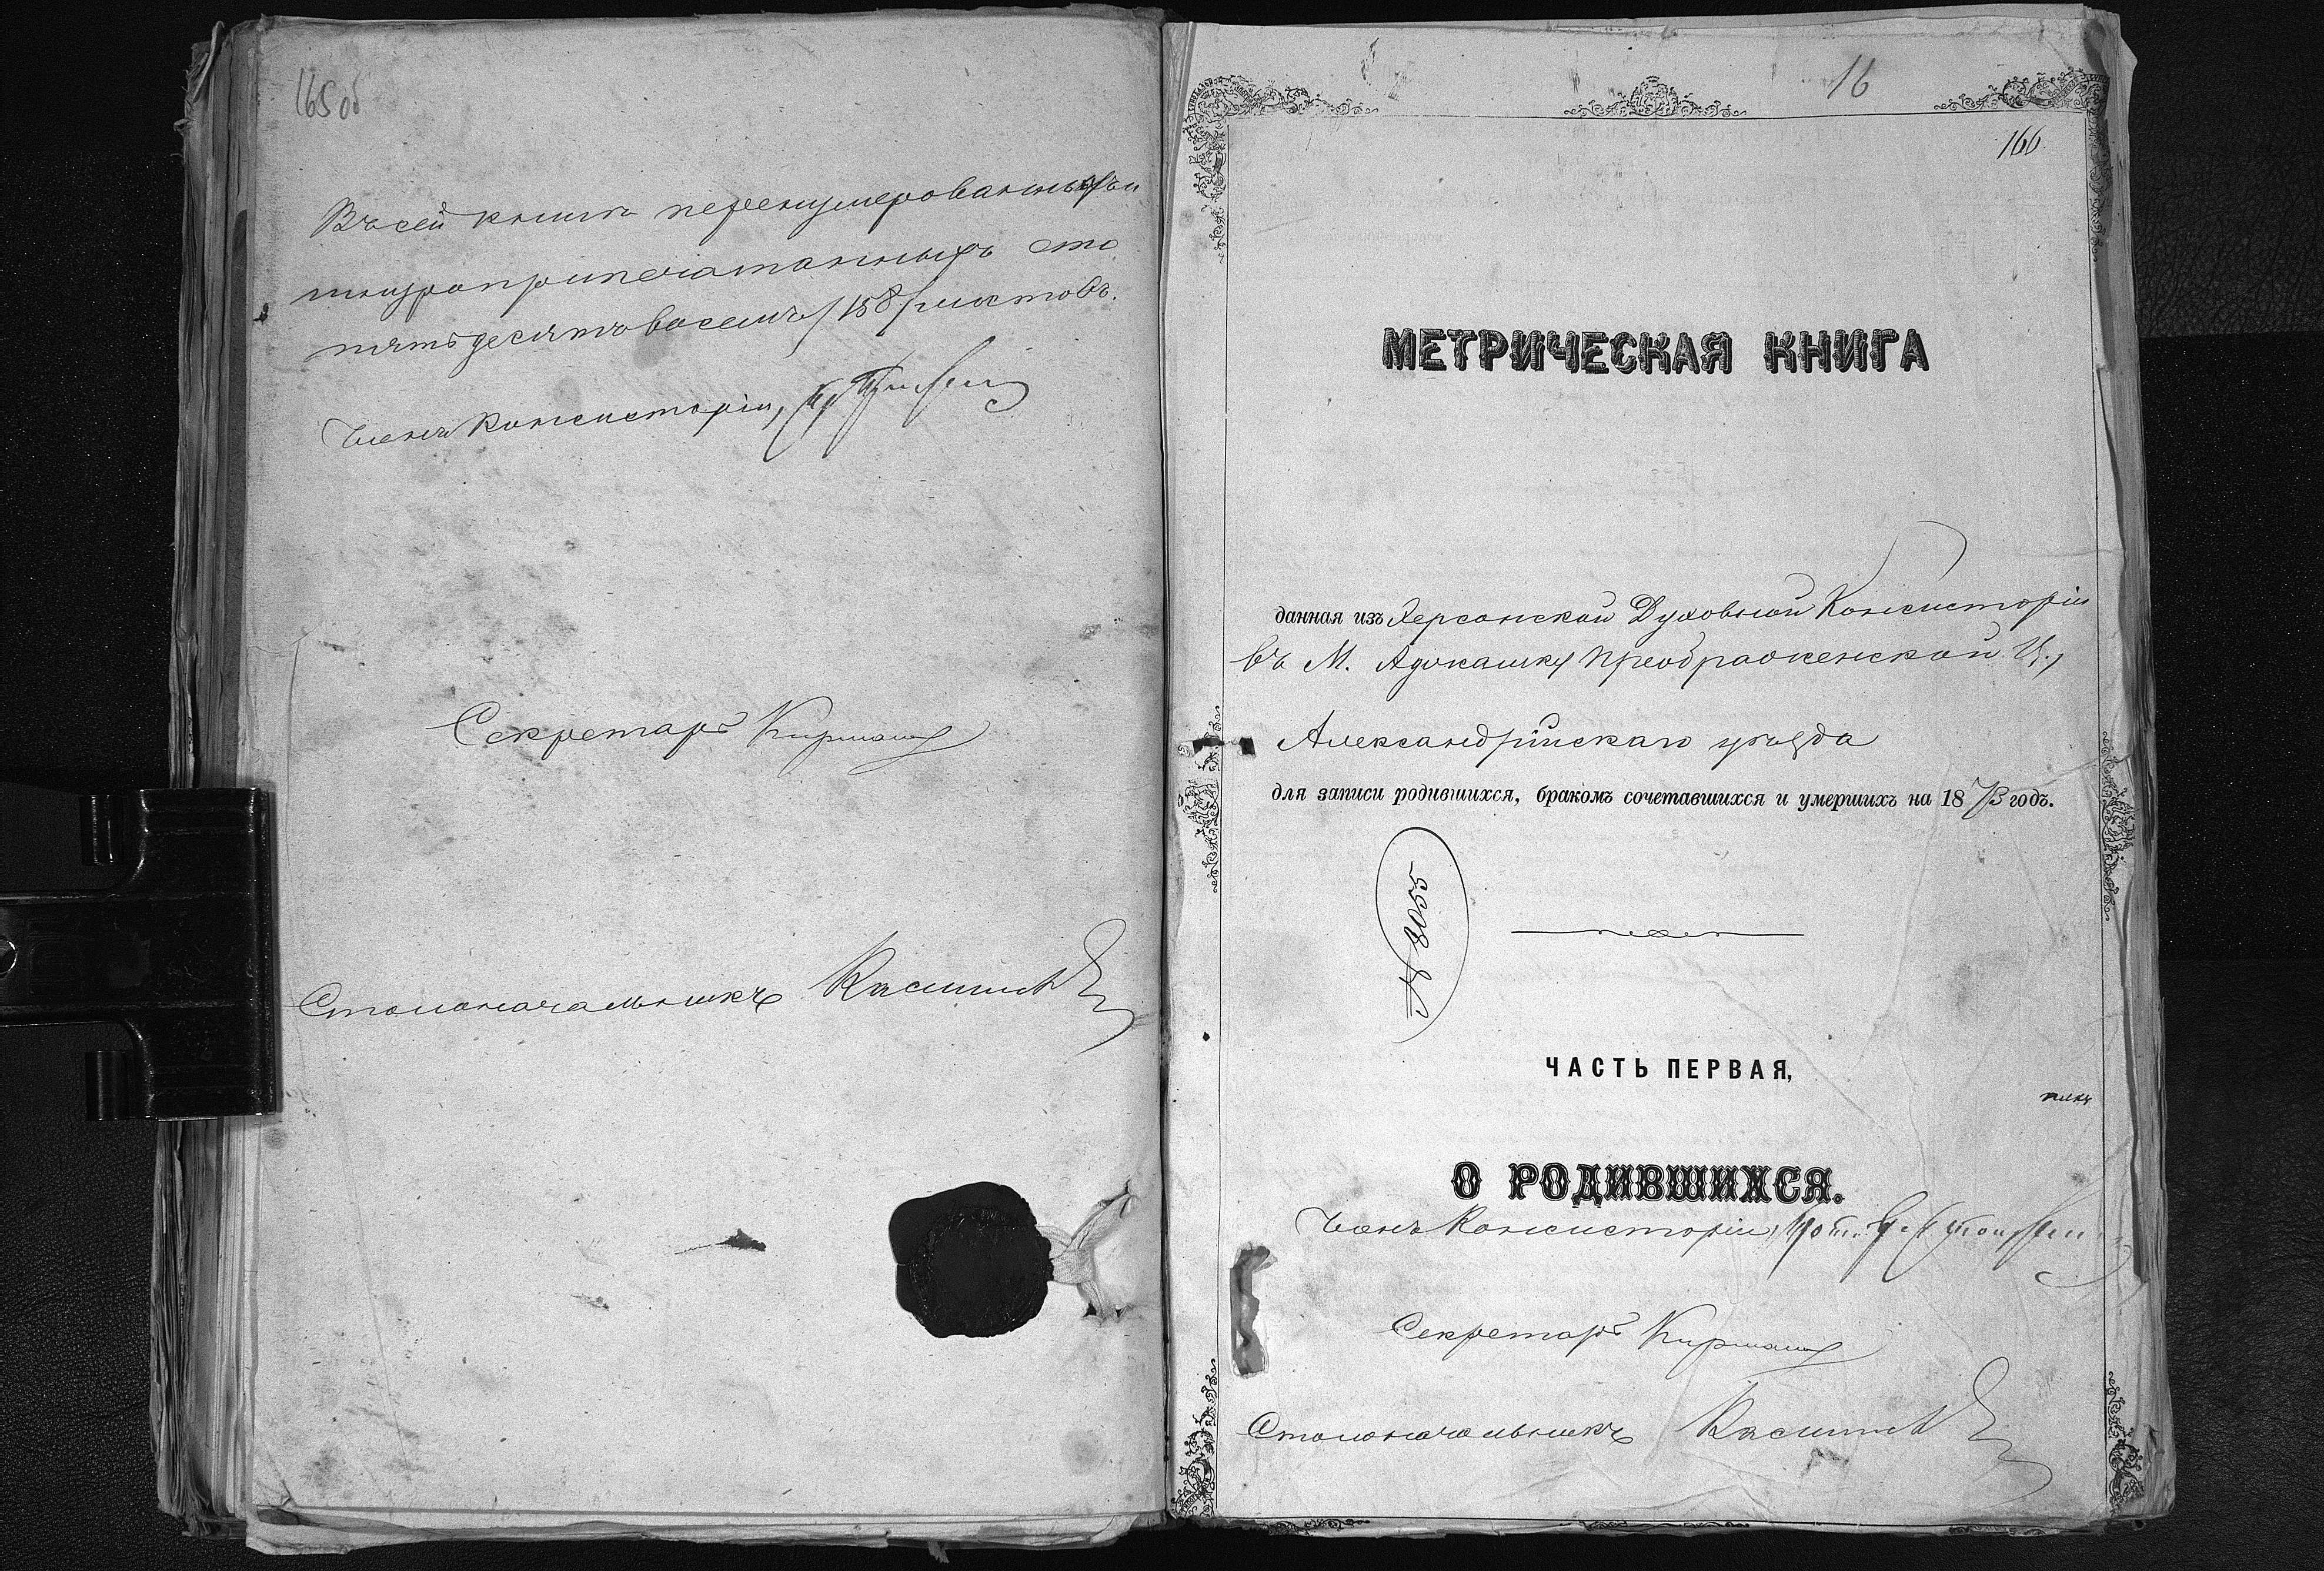 165 об
Въ сей книгѣ перенумерованныхъ и
шнуроприпечатанныхъ сто
пятьдесятъ восемь /158/ листовъ.
Членъ Консисторіи,
Секретарь
Столоначальникъ
16
166
МЕТРИЧЕСКАЯ КНИГА
данная изъ Херсонской Духовной Консисторіи
въ М. Аджамку Преображенской Ц.,
Александрійскаго уѣзда
для записи родившихся, бракомъ сочетавшихся и умершихъ на 1873 годъ.
№ 8055
ЧАСТЬ ПЕРВАЯ,
О РОДИВШИХСЯ.
Членъ Консисторіи,
Секретарь
Столоначальникъ